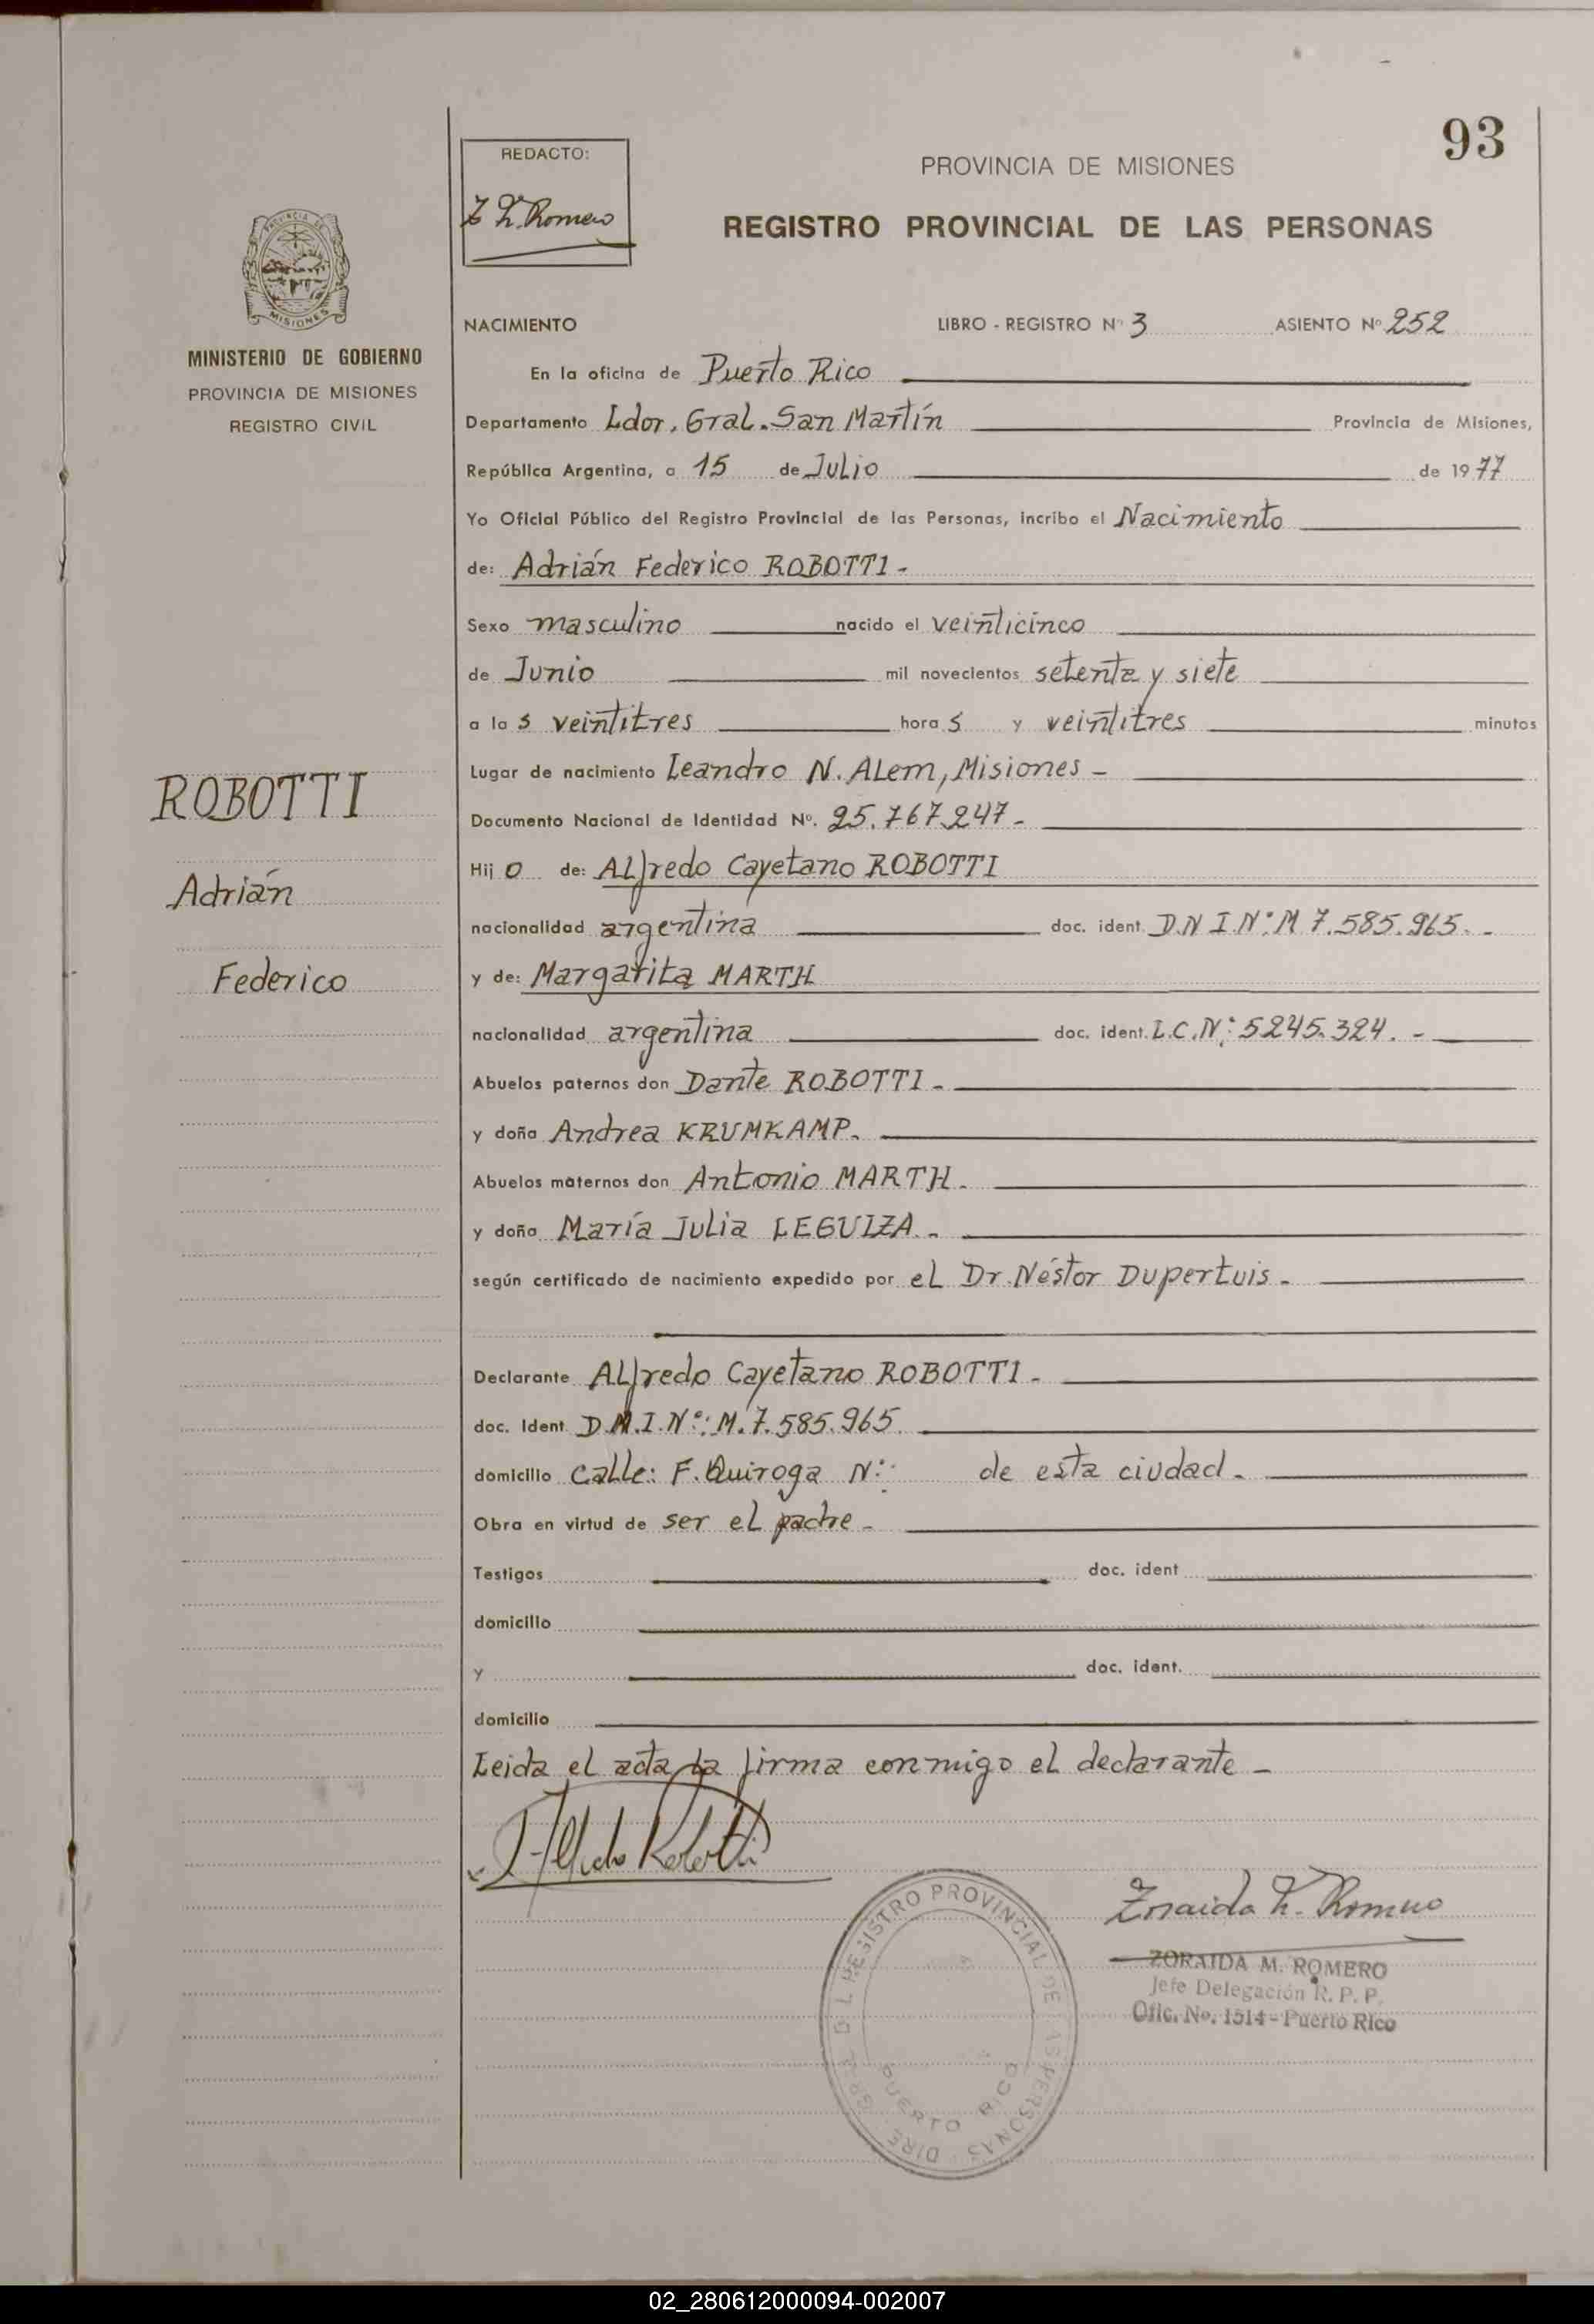 93
REDACTO:
Z M. Romero
PROVINCIA DE MISIONES
REGISTRO PROVINCIAL DE LAS PERSONAS
PROVINCIA DE
MISIONES
MINISTERIO DE GOBIERNO
PROVINCIA DE MISIONES
REGISTRO CIVIL
NACIMIENTO LIBRO - REGISTRO Nº 3 ASIENTO Nº 252
En la oficina de Puerto Rico
Departamento Ldor. Gral. San Martín Provincia de Misiones,
República Argentina, a 15 de Julio de 1977
Yo Oficial Público del Registro Provincial de las Personas, incribo el Nacimiento
de: Adrián Federico ROBOTTI -
Sexo masculino nacido el veinticinco
de Junio mil novecientos setenta y siete
a las veintitres horas y veintitres minutos
Lugar de nacimiento Leandro N. ALem, Misiones -
Documento Nacional de Identidad Nº. 25.767.247 -
Hijo de: ALfredo Cayetano ROBOTTI
nacionalidad argentina doc. ident. D.N I.Nº: M 7.585.965. -
y de: Margarita MARTH
nacionalidad argentina doc. ident. L.C.Nº: 5245.324. -
Abuelos paternos don Dante ROBOTTI -
y doña Andrea KRUMKAMP.
Abuelos maternos don Antonio MARTH.
y doña María Julia LEGUIZA. -
según certificado de nacimiento expedido por eL Dr. Néstor Dupertuis -
Declarante ALfredo Cayetano ROBOTTI. -
doc. Ident D.N.I.Nº: M. 7.585.965
domicilio Calle: F. Quiroga Nº: de esta ciudad. -
Obra en virtud de ser eL padre -
Testigos doc. ident
domicilio
y doc. ident.
domicilio
Leida el acta La firma conmigo eL declarante -
ROBOTTI
Adrián
Federico
Alfredo Robotti
Zoraida M. Romero
ZORAIDA M. ROMERO
Jefe Delegación R. P. P.
Ofic. No. 1514 - Puerto Rico
REGISTRO PROVINCIAL DE LAS PERSONAS
PUERTO RICO
02_280612000094-002007